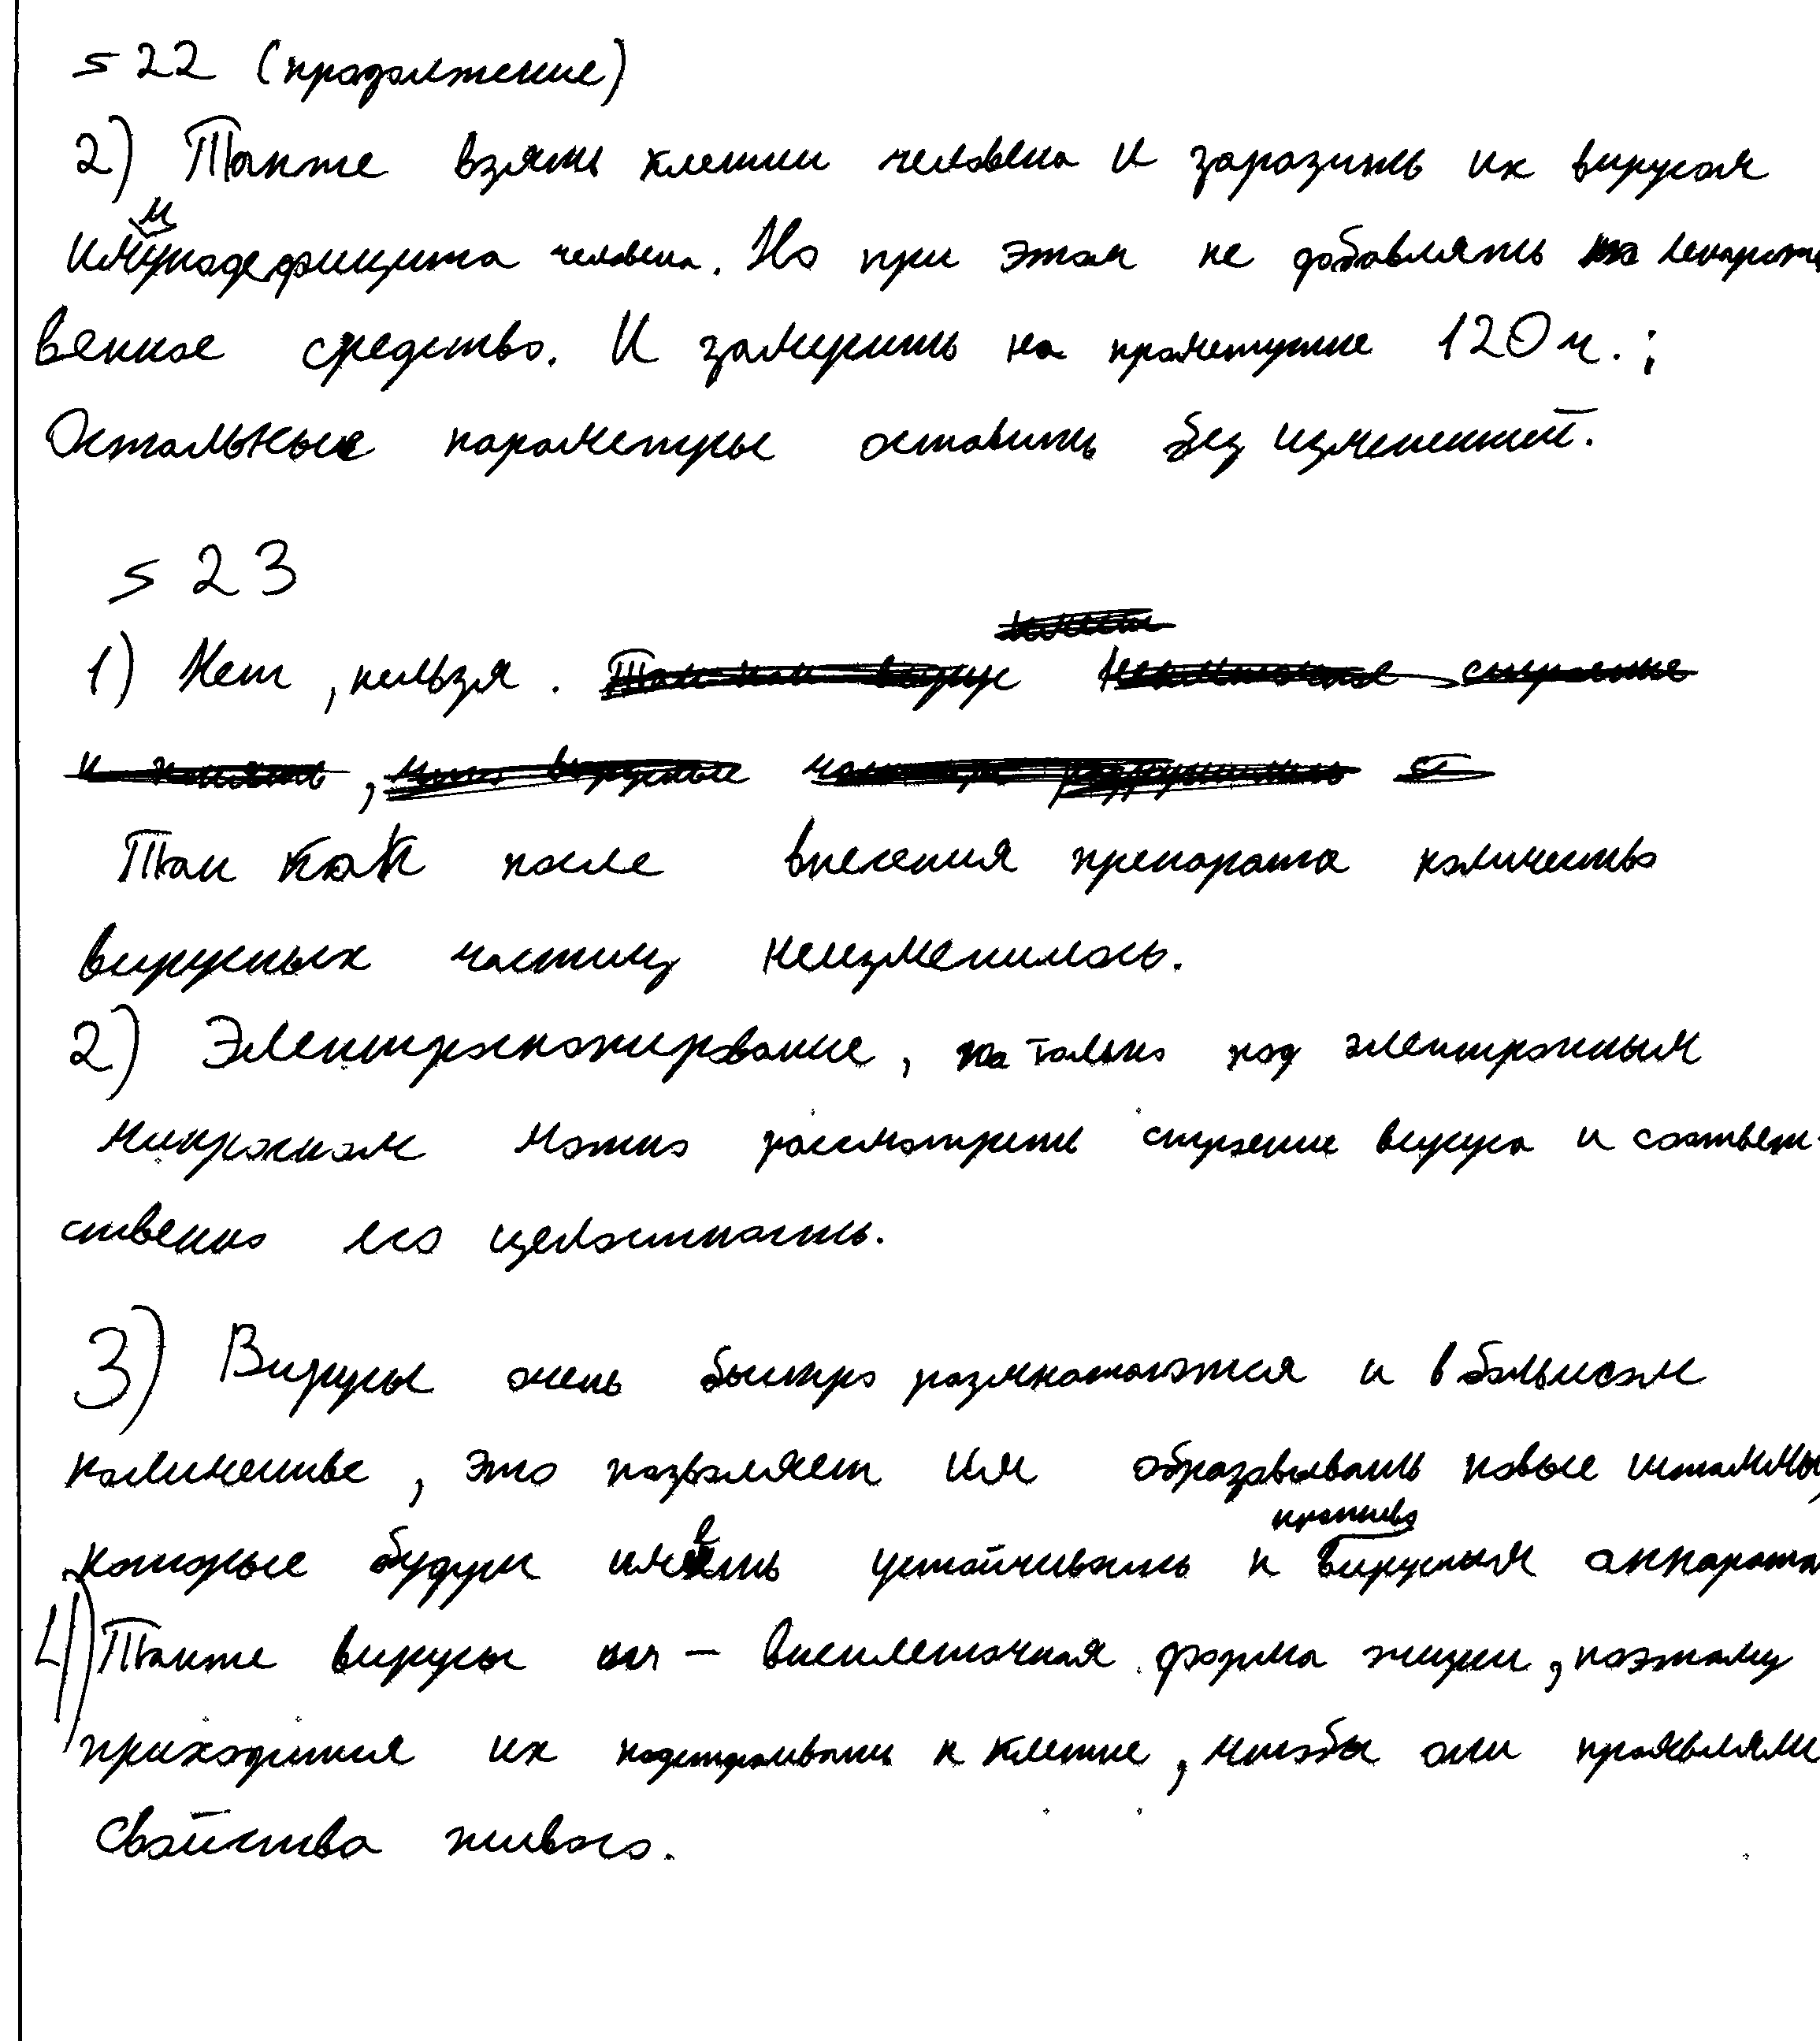 S 22 (продолжение)
2) Также взять клетки человека и заразить их вирусом
иммунодефицита человека. Но при этом не добавлять лекарст
венное средство. И замерить на промежутке 120 ч. ;
Остальные параметры оставить без изменений.
S 23
1) Нет, нельзя.
Так как после внесения препарата количество
вирусных частиц неизменилось.
2) Электро, только под электронным
микроском можно рассмотреть строение вируса и соответ-
ственно его целостность.
3) Вирусы очень быстро размножаются и в большом
количестве, это позволяет им образовывать новые штаммы,
которые будут иметь устойчивость к противовирусным
4) Также вирусы – внеклеточная форма жизни, поэтому
приходится их подстраивать к клетке, чтобы они проявляли
свойства живого.